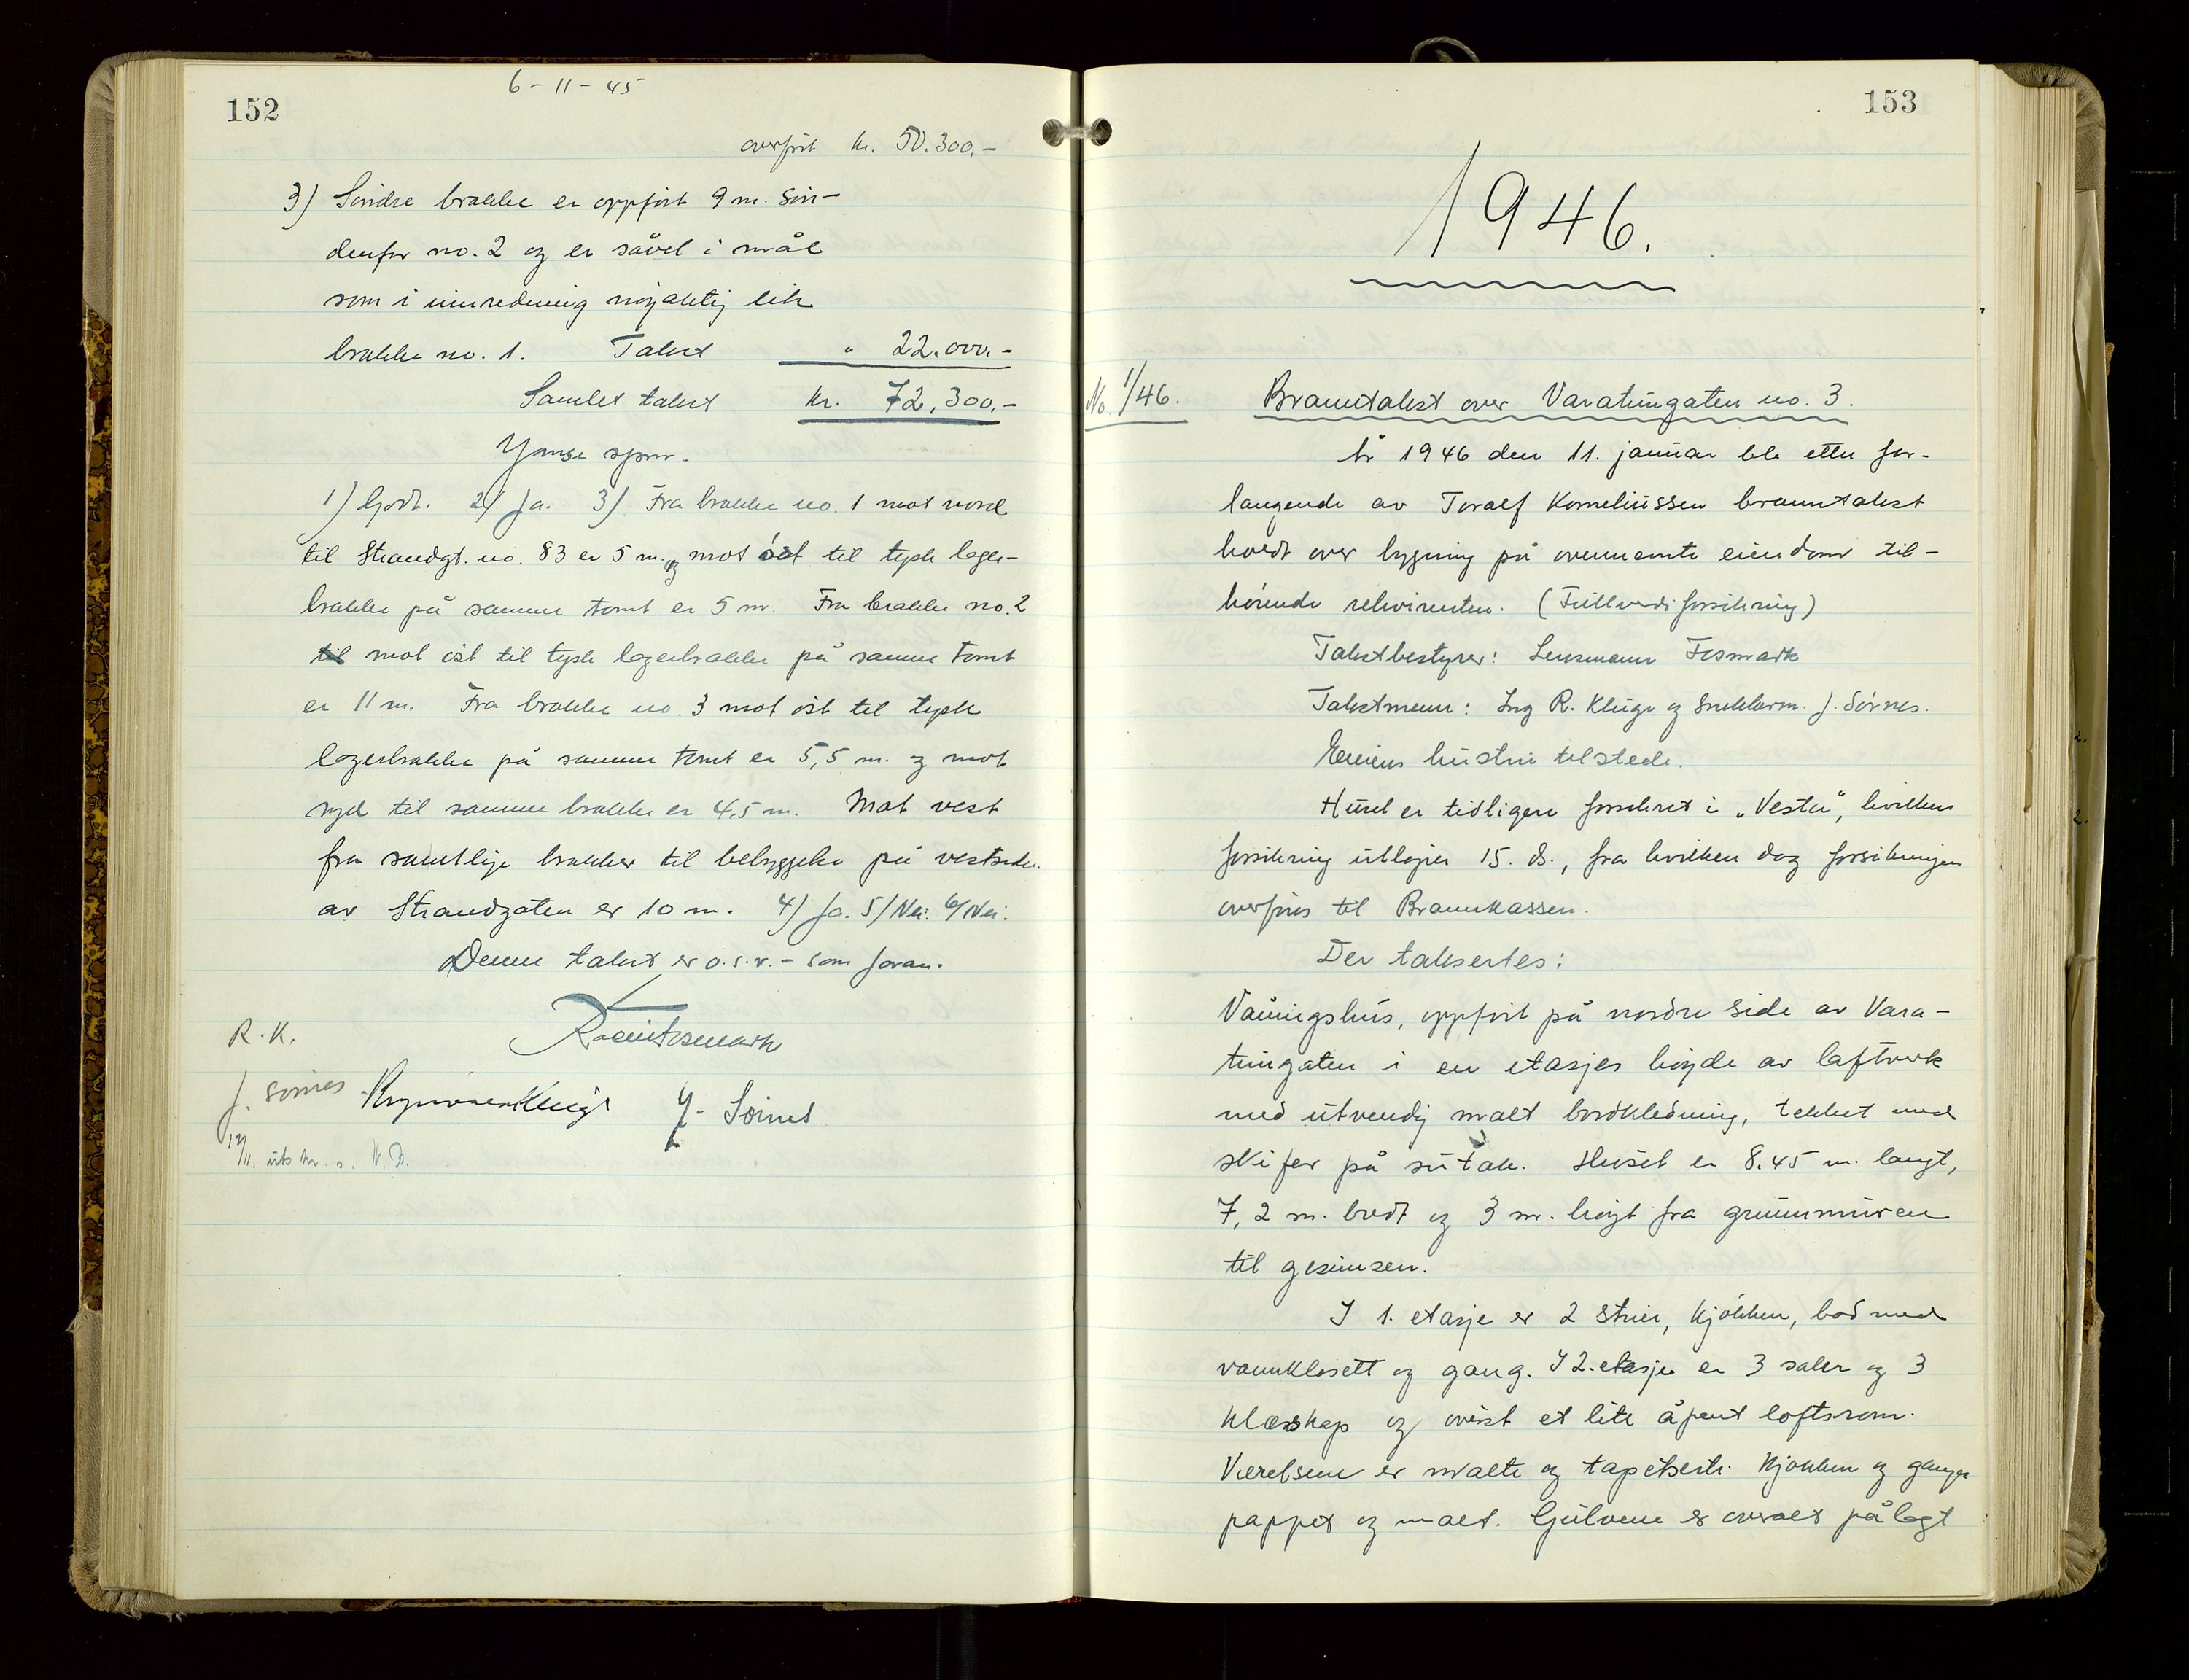 152
6-11-45
overført kr. 50.300,-
3) Søndre brakke er oppført 9 m. søn-
denfor no. 2 og er såvel i mål
som i innredning nøyaktig lik
brakke no. 1. Takst " 22.000.-
Samlet takst kr. 72,300,-
Ymse spm.
1) Godt. 2) Ja. 3) Fra brakke no. 1 mot nord
til Strandgt. no. 83 er 5 m. og mot øst til tysk lager-
brakke på samme tomt er 5 m. Fra brakke no. 2
til mot øst til tysk lagerbrakke på samme tomt
er 11 m. Fra brakke no. 3 mot øst til tysk
lagerbrakke på samme tomt er 5,5 m. og mot
syd til samme brakke er 4,5 m. Mot vest
fra samtlige brakker til bebyggelse på vestsiden
av Strandgaten er 10 m. 4) Ja. 5) Nei. 6) Nei.
Denne takst er o.s.v. - som foran.
R. K.
J. Sørnes
Kluge J. Sørnes
12/11. uts
153
1946.
No. 1/46. Branntakst over Varatungaten no. 3.
År 1946 den 11. januar ble etter for-
langende av Toralf Korneliussen branntakst
holdt over bygning på ovennevnte eiendom til-
hørende rekvirenten. (Fullverdiforsikring)
Takstbestyrer: Lensmann Fosmark
Takstmenn: Ing R. Kluge og snekkerm. J. Sørnes.
Eierens hustru tilstede.
Huset er tidligere forsikret i "Vesta", hvilken
forsikring utløper 15. ds., fra hvilken dag forsikringen
overføres til Brannkassen.
Der taksertes:
Våningshus, oppført på nordre side av Vara-
tungaten i en etasjes høyde av laftverk
med utvendig malt bordkledning, tekket med
skifer på sutak. Huset er 8.45 m. langt,
7,2 m. bredt og 3 m. høyt fra grunnmuren
til gesimsen.
I 1. etasje er 2 stuer, kjøkken, bod med
vannklosett og gang. I 2. etasje er 3 saler og 3
klæsskap og øverst et lite åpent loftsrom.
Værelsene er malte og tapetserte. Kjøkken og ganger
pappet og malt. Gulvene er overalt pålagt